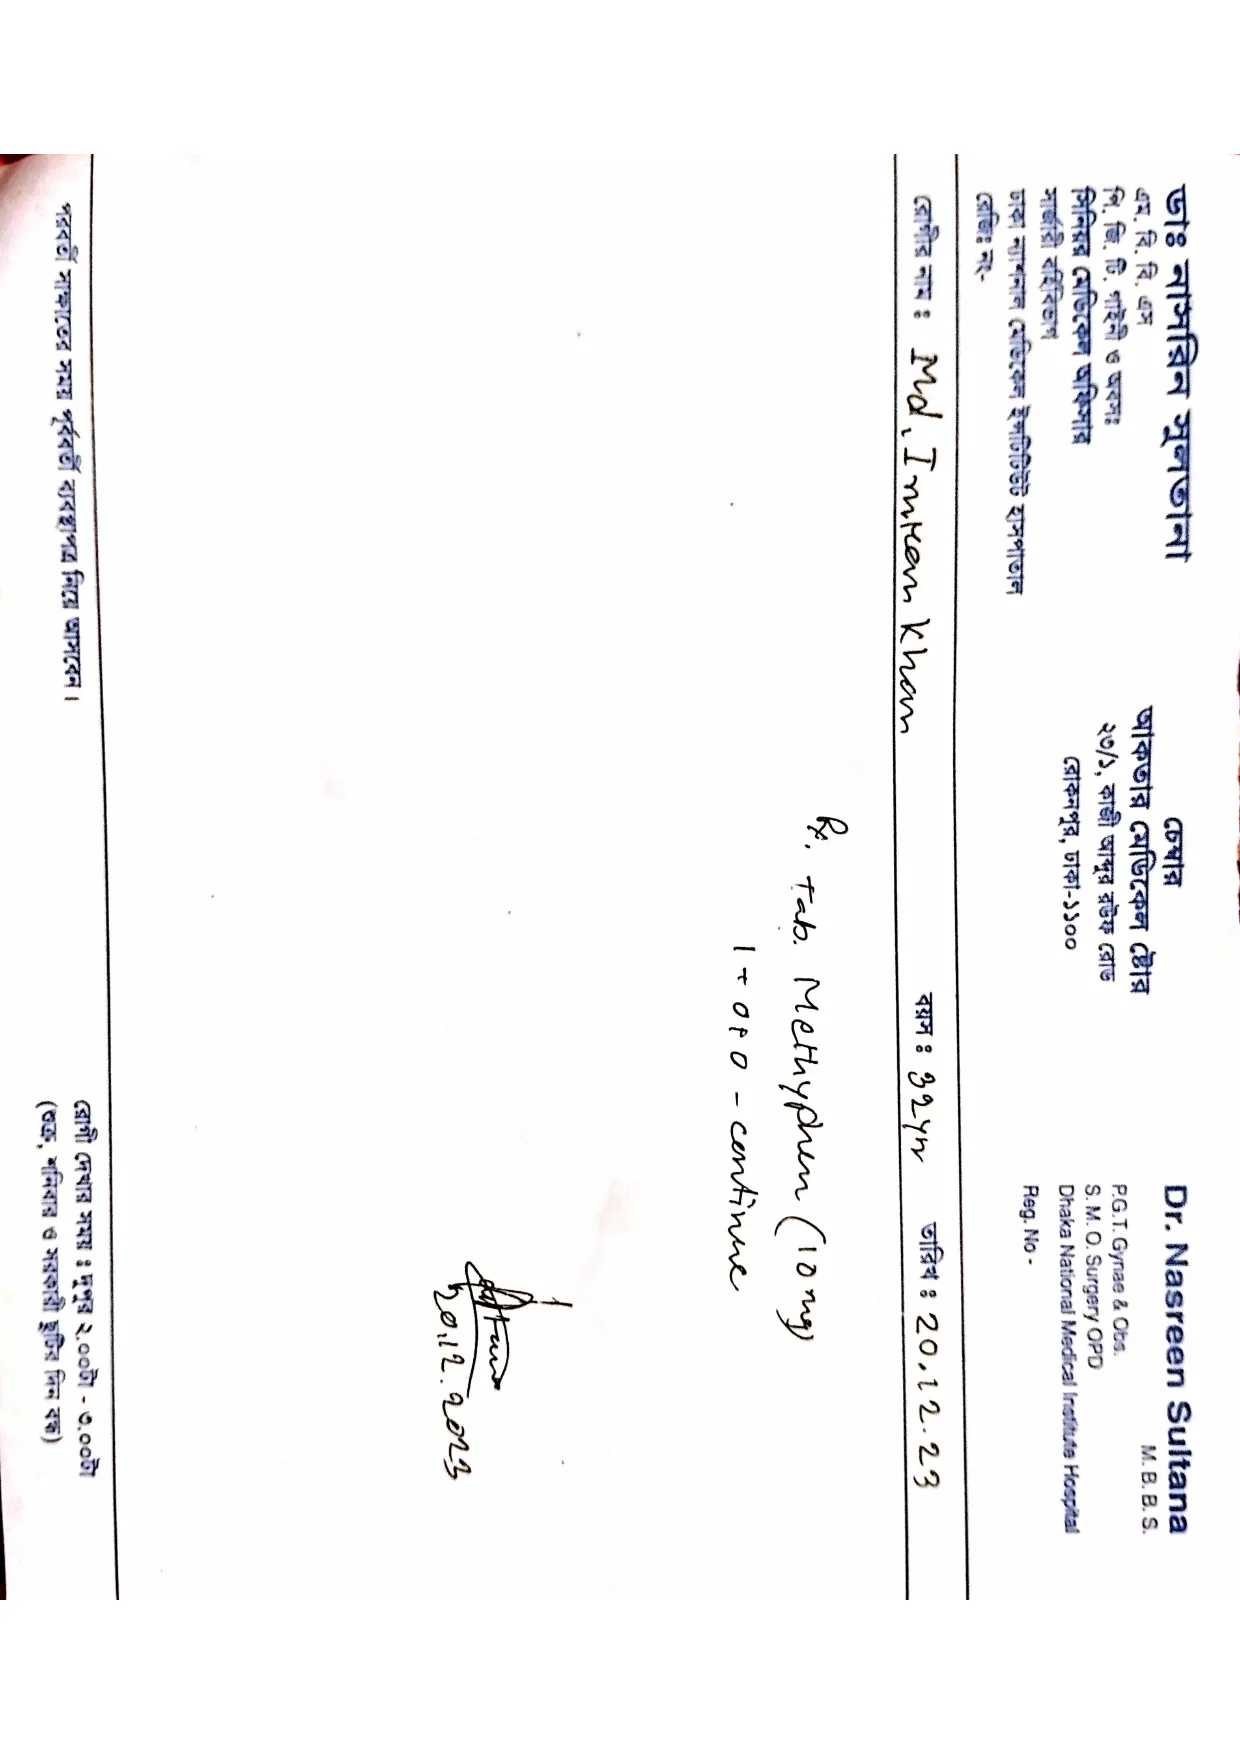 ডাঃ নাসরিন সুলতানা
এম. বি. বি. এস
পি. জি. টি. গাইনী ও অবসঃ
সিনিয়র মেডিকেল অফিসার
সার্জারী বহির্বিভাগ
ঢাকা ন্যাশনাল মেডিকেল ইন্সটিটিউট হাসপাতাল
রেজিঃ নং-
চেম্বার
আকতার মেডিকেল ষ্টোর
২৩/১, কাজী আব্দুর রউফ রোড
রোকনপুর, ঢাকা-১১০০
Dr. Nasreen Sultana
M. B. B. S.
P.G.T. Gynae & Obs.
S. M. O. Surgery OPD
Dhaka National Medical Institute Hospital
Reg. No -
রোগীর নাম : Md. Imran Khan বয়স : 32yr তারিখ : 20.12.23
Rx.
Tab. Methyphen (10 mg)
1+0+0 - continue
20.12.2023
পরবর্তী সাক্ষাতের সময় পূর্ববর্তী ব্যবস্থাপত্র নিয়ে আসবেন।
রোগী দেখার সময় : দুপুর ২.০০টা - ৩.০০টা
(শুক্র, শনিবার ও সরকারী ছুটির দিন বন্ধ)